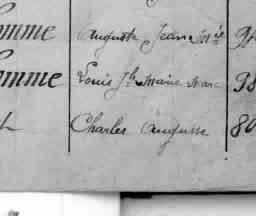 omme Auguste Jean M 94
omme Louis Jh Marie Marc 98
Charles Auguste 80